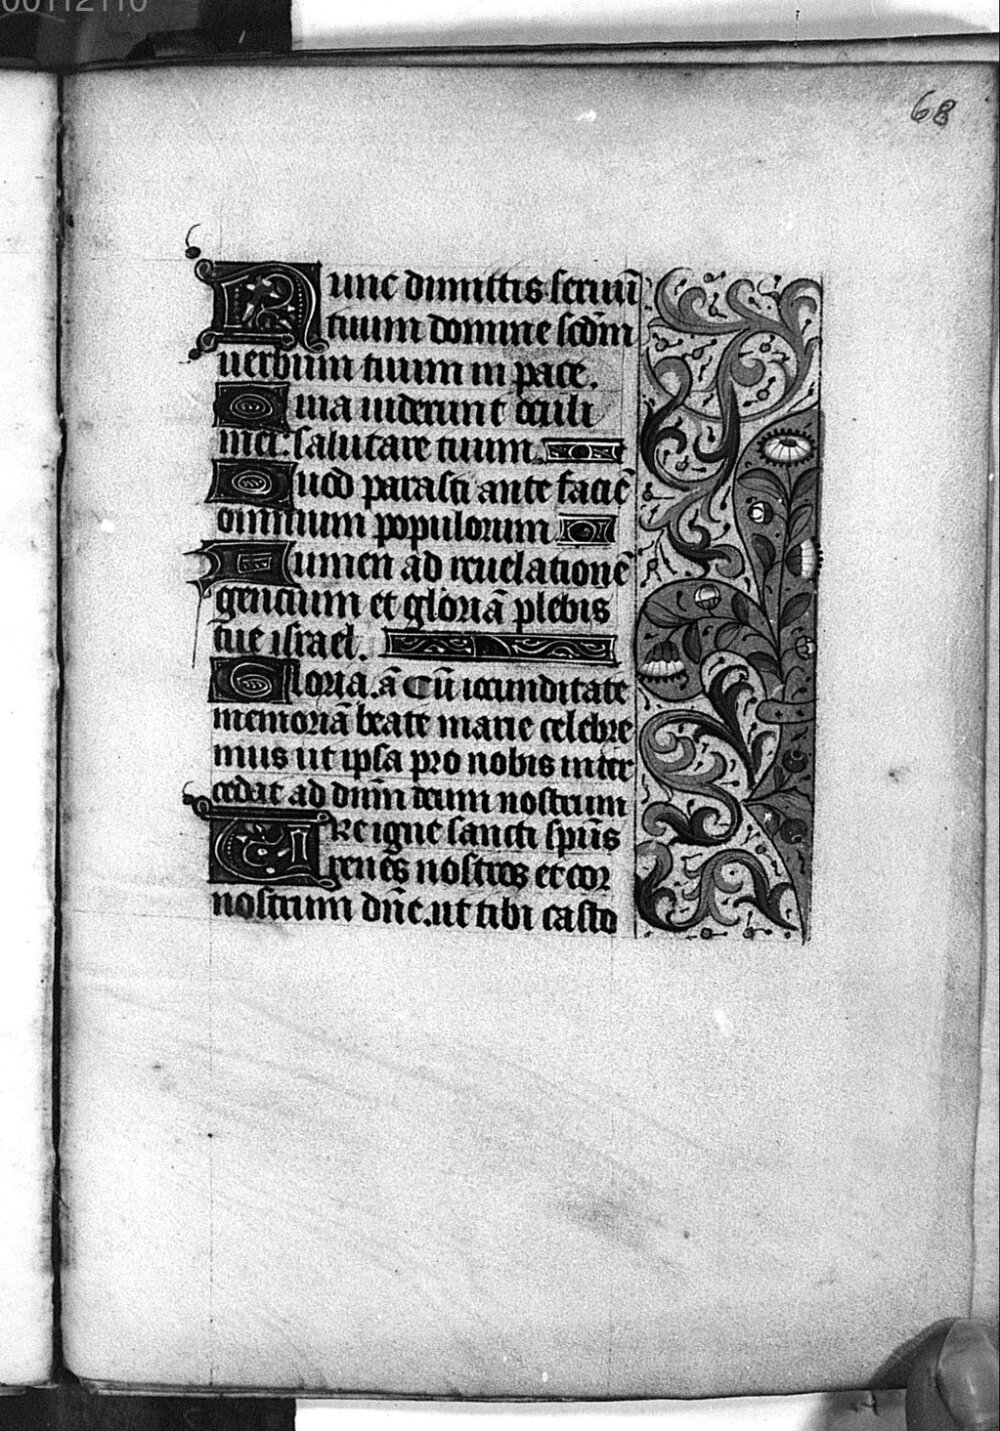 00112110
68
Nunc dimittis seruū
tuum domine scdm̄
uerbum tuum in pace.
Quia uiderunt oculi
mei: salutare tuum.
Quod parasti ante faciē
omnium populorum
Lumen ad reuelationē
gentium et gloriā plebis
tue israel.
Gloria. ā Cū iocunditate
memoriā beate marie celebre
mus ut ipsa pro nobis inter
cedat ad dnm̄ deum nostrum
Ure igne sancti spūs
renes nostros et cor
nostrum dn̄e. ut tibi casto